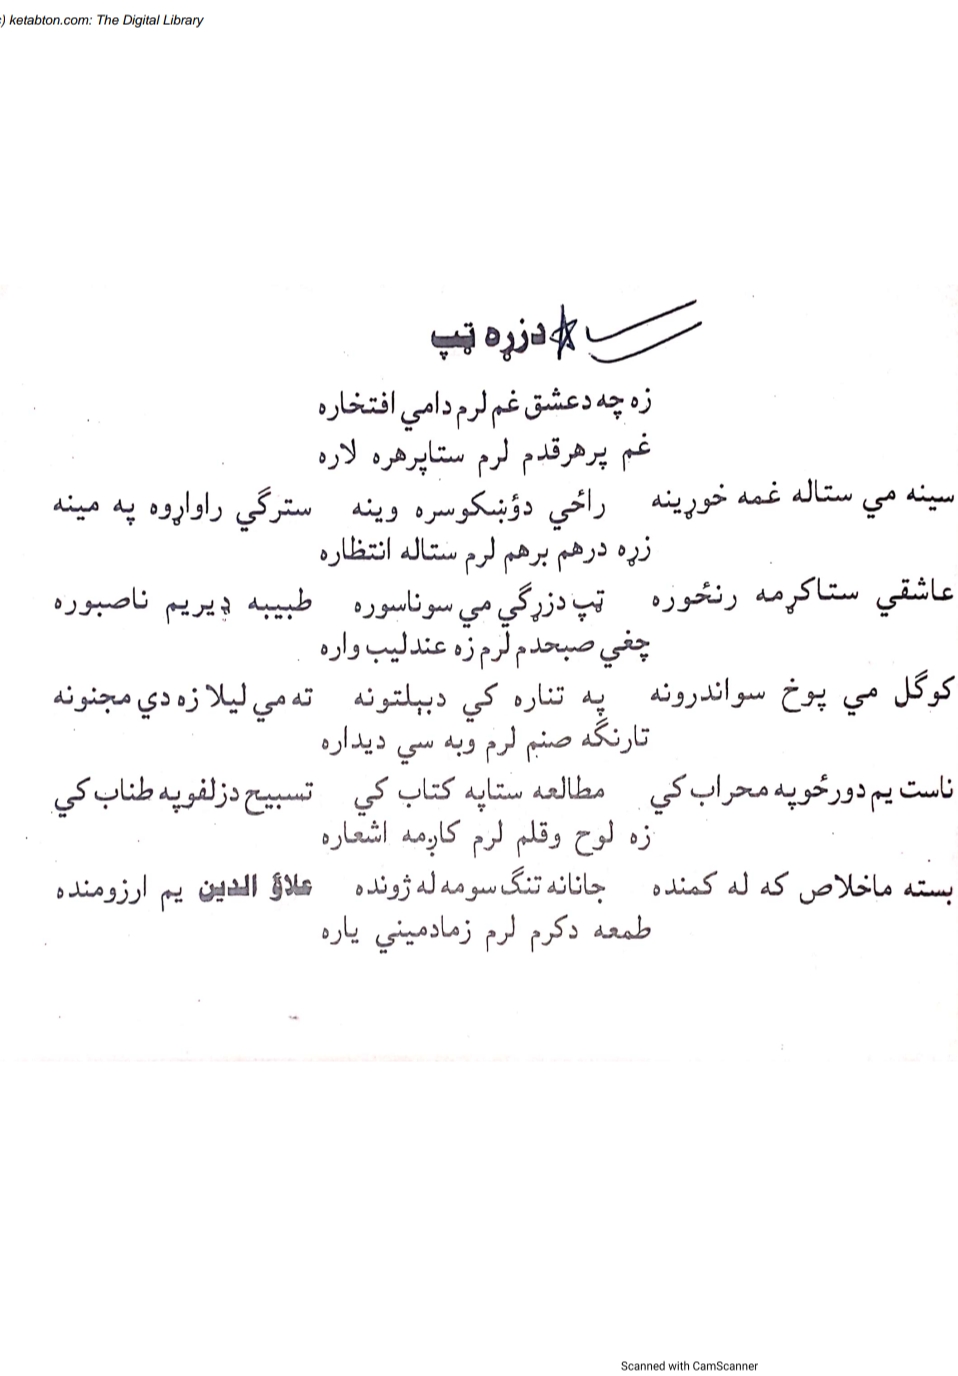 ) ketabton.com: The Digital Library
دزړه ټپ
زه چه دعشق غم لرم دامي افتخاره
غم پرهرقدم لرم ستاپرهره لاره
سينه مي ستاله غمه خوړينه راځي دؤښکوسره وينه سترګي راواړوه په مينه
زړه درهم برهم لرم ستاله انتظاره
عاشقي ستاکړمه رنځوره ټپ دزړګي مي سوناسوره طبيبه ډيريم ناصبوره
چغي صبحدم لرم زه عندليب واره
کوګل مي پوخ سواندرونه په تناره کي دبېلتونه ته مي ليلا زه دي مجنونه
تارنګه صنم لرم وبه سي ديداره
ناست يم دورځوپه محراب کي مطالعه ستاپه کتاب کي تسبيح دزلفوپه طناب کي
زه لوح وقلم لرم کاږمه اشعاره
بسته ماخلاص که له کمنده جانانه تنګ سومه له ژونده علاؤ الدين يم ارزومنده
طمعه دکرم لرم زمادميني ياره
Scanned with CamScanner